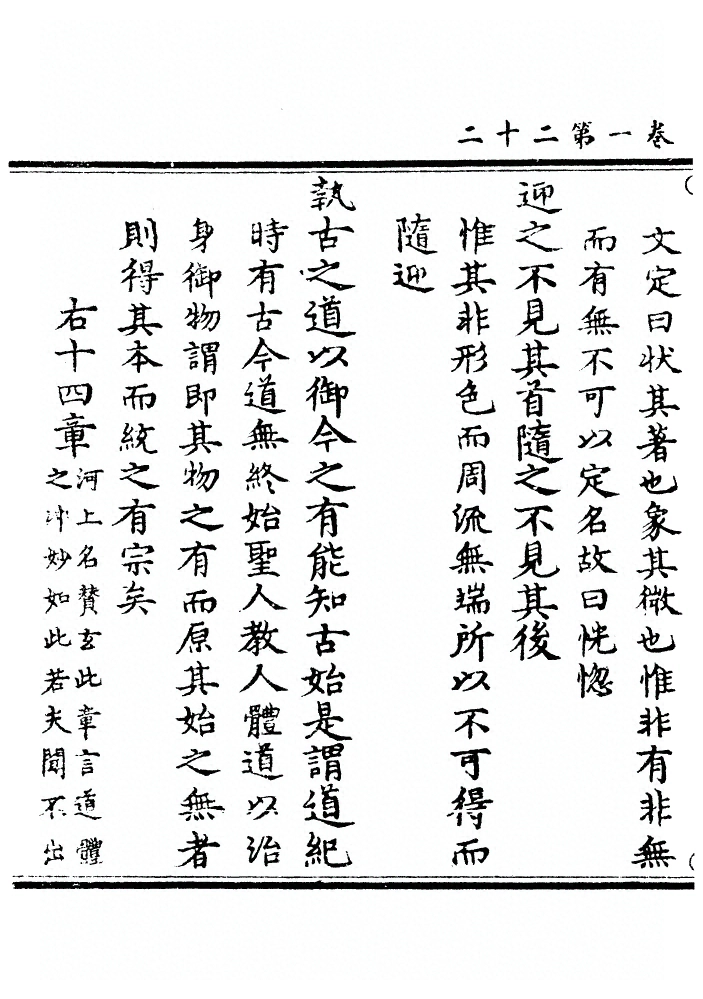 卷一第二十二
文定曰狀其著也象其微也惟非有非無
而有無不可以定名故曰恍惚
迎之不見其首隨之不見其後
惟其非形色而周流無端所以不可得而
隨迎
執古之道以御今之有能知古始是謂道紀
時有古今道無終始聖人教人體道以治
身御物謂即其物之有而原其始之無者
則得其本而統之有宗矣
右十四章河上名贊玄此章言道體
之沖妙如此若夫聞不出